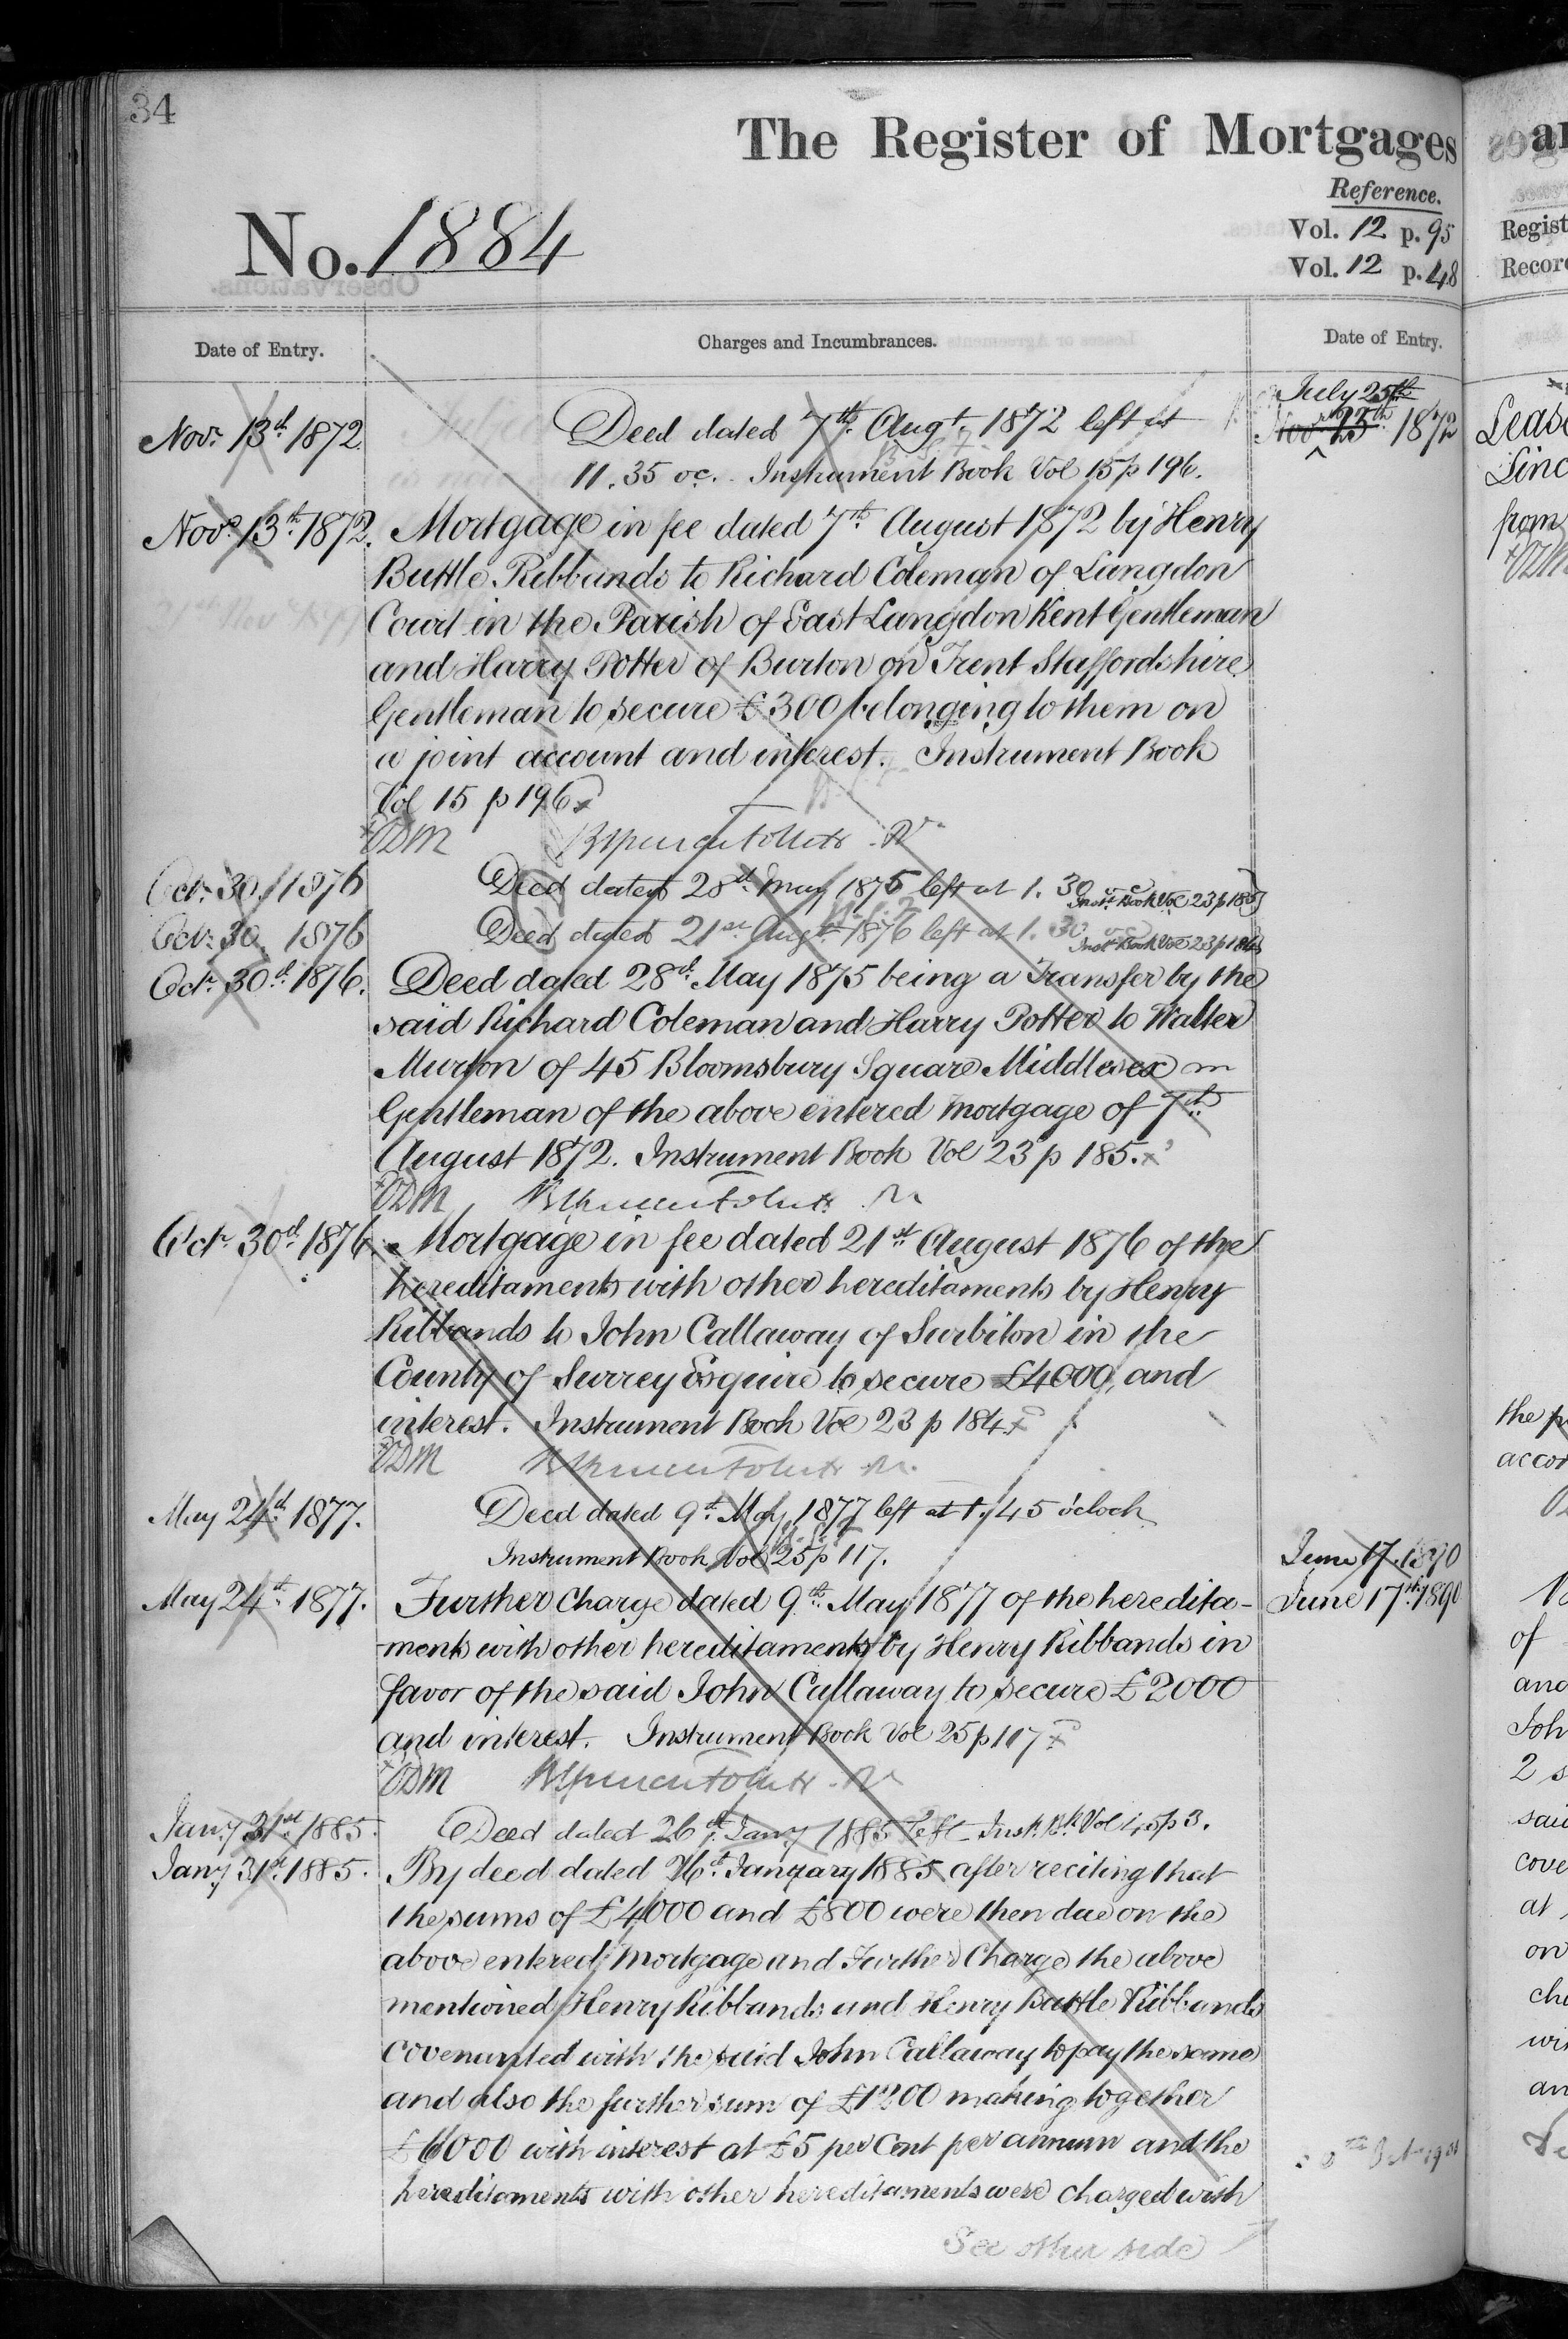 34
The Register of Mortgages
Reference.
Vol. 12 p. 95
Vol. 12 p. 48
No. 1884
Date of Entry.
Charges and Incumbrances.
Date of Entry.
Novr. 13th. 1872
Deed dated 7th. Augt. 1872 left at
11.35 oc. Instrument Book Vol 15 p 196.
Novr. 13th. 1872.
Mortgage in fee dated 7th August 1872 by Henry
Buttle Ribbands to Richard Coleman of Langdon
Court in the Parish of East Langdon Kent Gentleman
and Harry Potter of Burton on Trent Staffordshire
Gentleman to secure £300 belonging to them on
a joint account and interest. Instrument Book
Vol 15 p 196
ODM
Octr. 30. 1876
Deed dated 28th. May 1875 left at 1.30 oc
Inst. Book Vol 23 p 185
Octr. 30. 1876
Deed dated 21st. Augt. 1876 left at 1.30 oc
Inst. Book Vol 23 p 184
Octr. 30th. 1876.
Deed dated 28th. May 1875 being a Transfer by the
said Richard Coleman and Harry Potter to Walter
Murton of 45 Bloomsbury Square Middlesex
Gentleman of the above entered mortgage of 7th
August 1872. Instrument Book Vol 23 p 185.
ODM
Octr. 30th. 1876
Mortgage in fee dated 21st August 1876 of the
hereditaments with other hereditaments by Henry
Ribbands to John Callaway of Surbiton in the
County of Surrey Esquire to secure £4000, and
interest. Instrument Book Vol 23 p 184
ODM
May 24th. 1877.
Deed dated 9th. May 1877 left at 1.45 o'clock
Instrument Book Vol 25 p 117.
May 24th. 1877.
Further Charge dated 9th. May 1877 of the heredita-
-ments with other hereditaments by Henry Ribbands in
favor of the said John Callaway to secure £2000
and interest. Instrument Book Vol 25 p 117
ODM
Jany 31st. 1885.
Deed dated 26th. Jany 1885 left Inst. Bk Vol 45 p 3.
Jany 31st. 1885.
By deed dated 26th. January 1885 after reciting that
the sums of £4000 and £800 were then due on the
above entered Mortgage and Further Charge the above
mentioned Henry Ribbands and Henry Buttle Ribbands
covenanted with the said John Callaway to pay the same
and also the further sum of £1200 making together
£6000 with interest at £5 per Cent per annum and the
hereditaments with other hereditaments were charged with
See other side
July 25th
Novr 13th 1872
June 17. 1890
June 17th. 1890
Regist
Record
Lease
Linc
from
the p
accor
of
and
Joh
2 s
said
cove
at
on
cha
wi
an